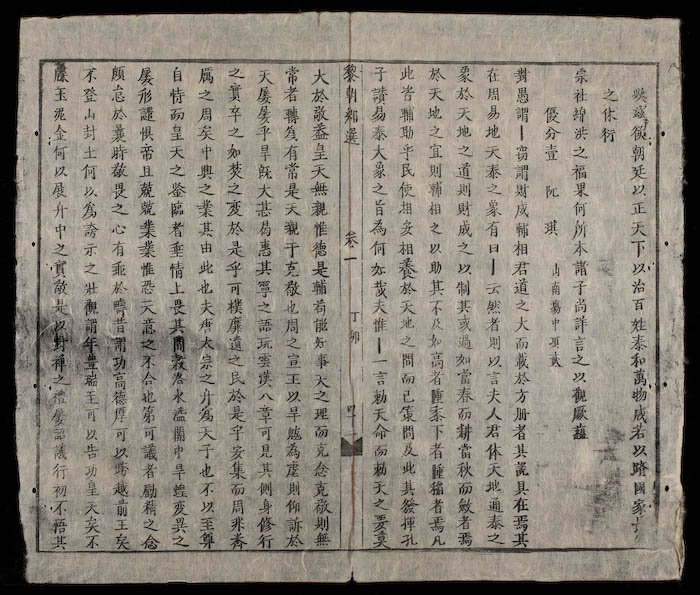 朝廷以正天下以治百姓泰和萬物咸若以躋國家
之休衍
宗社緯洪之福果何所本諸子尚詳言之以觀厥蘊
優分壹 阮琪 山南 中項
對愚謂丨竊謂財成輔相君道之大而載於方册者其說具在焉其
在周易地天泰之象有曰丨云然者則以言夫人君体天地通泰之
象於天地之道則財成之以制其或過如當春而耕當秋而斂者焉
於天地之宜則輔相之以助其不及如高者種黍下者種稻者焉凡
此皆輔助乎民使相安相養於天地之間而已策問及此其發揮孔
子讀易泰大象之旨為何如哉夫惟丨一言勅天命而勅天之要莫
黎朝鄉選 卷一 丁卯 四
大於敬蓋皇天無親惟德是輔苟能知事天之理而克念克敬則無
常者轉爲有常是天親于克敬也周之宣王以旱魃為虐則仰訴於
天屢屢乎旱既大甚曷惠其寧之語玩雲漢八章可見其側身修行
之實卒之如焚之變於是乎可樸靡遺之民於是乎安集而周非齊
厲之周矣中興之業其由此也夫唐太宗之為天子也不以至尊
自恃而皇天之鑒臨者垂情上畏其間穀洛水溢關中旱蝗變異之
屢形謹惧帝且兢兢業業惟恐天意之不合也第可議者勵精之念
頗怠於曩時敬畏之心有乖於疇昔謂功高德厚可以跨越前王矣
不登山封土何以為誇示之壯觀謂年豊瑞至可以告功皇天矣不
牒玉泥金何以展升中之實敬是以封禪之禮屢詔議行初不悟其